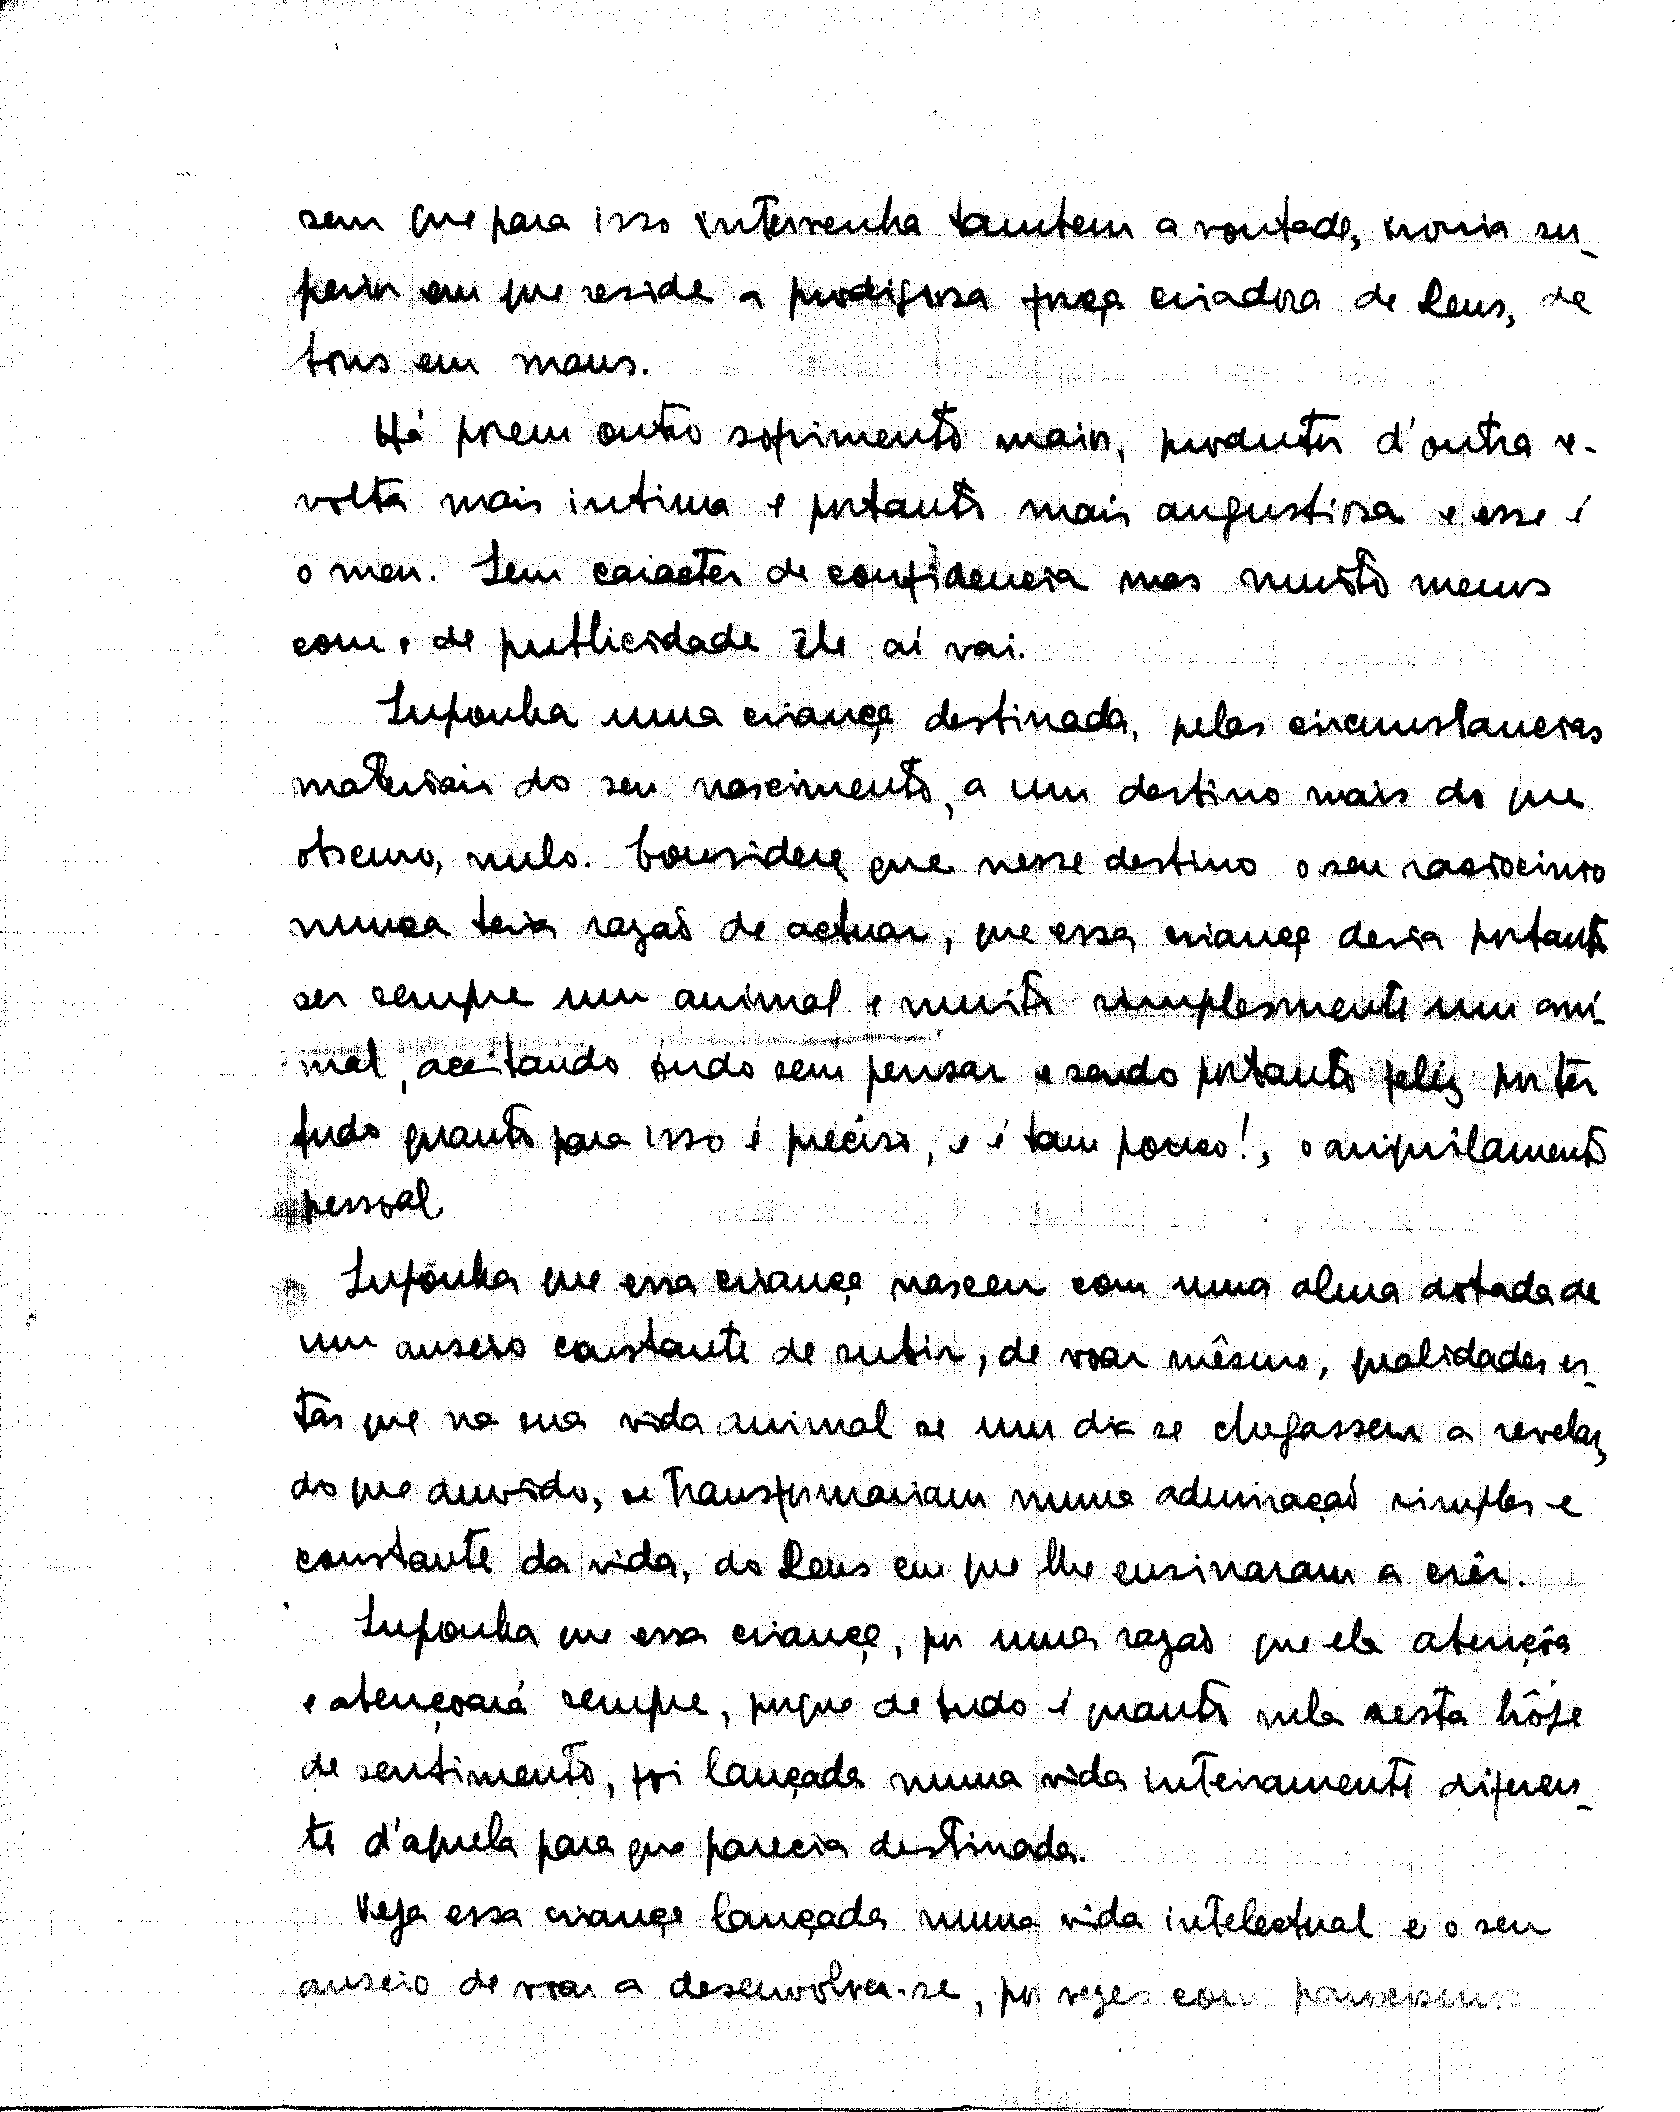 sem que para isso intervenha tambem a vontade, ironia su-
perior em que reside a prodigiosa força criadora de Deus, de
bons em maus.
Há porem outro sofrimento maior, produtor d'outra re-
volta mais intima e portanto mais angustiosa e esse é
o meu. Sem caracter de confidencia mas muito menos
com o de publicidade êle aí vai.
Suponha uma criança destinada, pelas circumstancias
materiais do seu nascimento, a um destino mais do que
obscuro, nulo. Considere que nesse destino o seu raciocinio
nunca teria razaõ de actuar, que essa criança devia portanto
ser sempre um animal e muito simplesmente um ani-
mal, aceitando tudo sem pensar e sendo portanto feliz por ter
tudo quanto para isso é preciso, e é tam pouco!, o aniquilamento
pessoal
Suponha que essa criança nasceu com uma alma dotada de
um anseio constante de subir, de voar mêsmo, qualidades es-
tas que na sua vida animal se um dia se chegassem a revelar,
do que duvido, se transformariam numa admiraçaõ simples e
constante da vida, do Deus em que lhe ensinaram a crêr.
Suponha que essa criança, por uma razaõ que ela abençôa
e abençoará sempre, porque de tudo é quanto nela resta hôje
de sentimento, foi lançada numa vida inteiramente diferen-
te d'aquela para que parecia destinada.
Veja essa criança lançada numa vida intelectual e o seu
anseio de voar a desenvolver-se, por vezes com